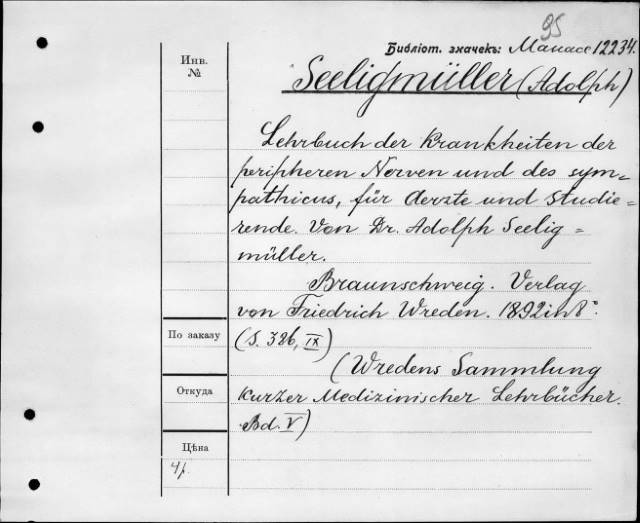 95
Библіот. значекъ: Манасе 12234.
Инв.
№
Seeligmüller (Adolph)
Lehrbuch der Krankheiten der
peripheren Nerven und des sym=
pathicus, für Aerzte und Studie=
rende. Von Dr. Adolph Seelig=
müller.
Braunschweig. Verlag
von Friedrich Wreden. 1892 in 8°.
По заказу
(S. 386, IX)
(Wredens Sammlung
Откуда
kurzer Medizinischer Lehrbücher.
Bd. V)
Цѣна